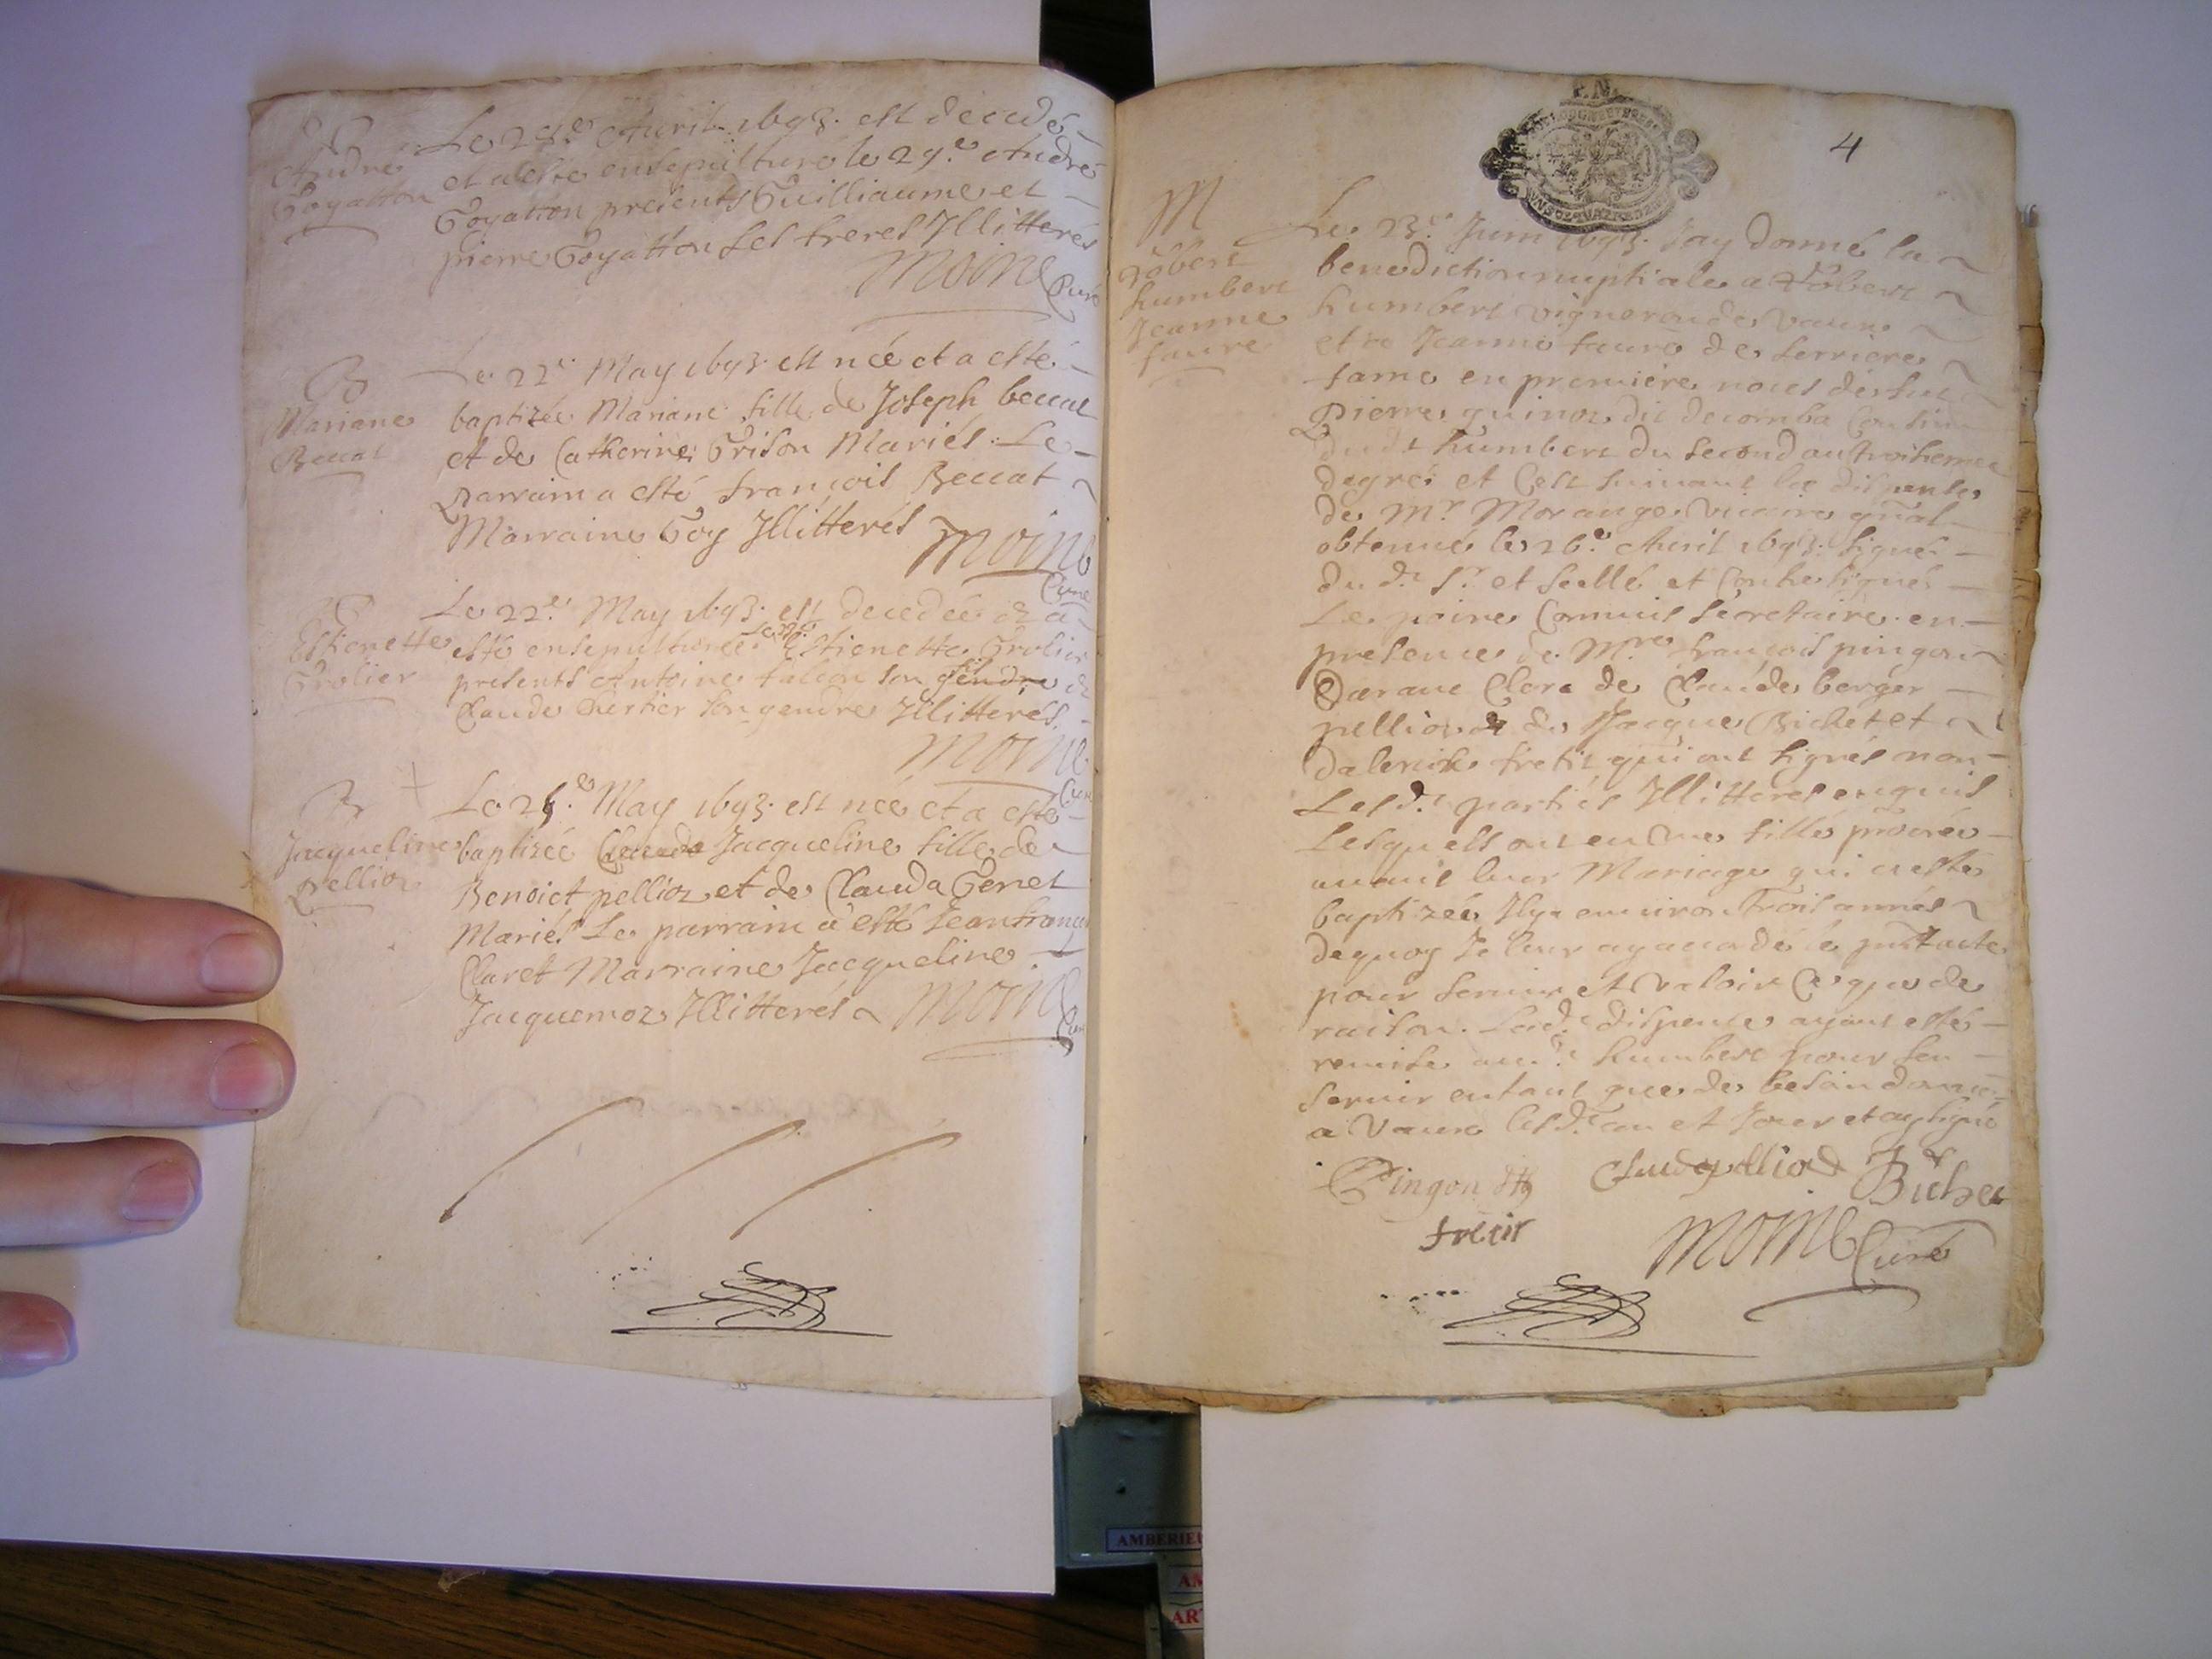 André
Goyatton
Le 2 Auril 1693 est decedé
et a esté ensepulturé le 29.e André
Goyatton presents Guilliaume et
pierre Goyatton ses freres Jllitterés
Moine Curé
B
Mariane
Beccat
Le 22e May 1693 est née et a esté
baptizée Mariane fille de Joseph beccat
et de Catherine Grison Mariés Le
parrain a esté françois Beccat
Marraine Goy Jllitterés
Moine
Curé
Estienette
Grolier
Le 22e May 1693 est decedée & a
esté ensepulturée Estienette Grolier
presents Antoine falcon son gendre fils &
Claude Mertier son gendre Jllitterés
Moine
Curé
B
Jacqueline
pellioz
Le 25.e May 1693 est née et a esté
baptizée Clauda Jacqueline fille de
Benoict pellioz et de Clauda Genet
Mariés Le parrain a esté Jean françois
Claret Marraine Jacqueline
Jacquemoz Jllitterés Moine
Curé
4
M
Robert
humbert
Jeanne
faure
Le 23.e Juin 1693 Jay donné la
benediction nuptiale a Robert
humbert vigneron de Vaux
et a Jeanne faure de serriere
fame en premiere noces de feu
Pierre quinoz dit decomba Cousin
dudt humbert du second au troisieme
degré et Cest suiuant la dispense
de Mr Morange Vicaire gnal
obtenue le 26.e Auril 1693 signé
du d. Sr et scellé et Contresigné
Le poivre Commis secretaire en
presence de Mre françois pingon
Claude berger
pellioz & de Jacque Bichet et
fretit qui ont signés non
Lesd. parties Jllitteres enquis
Lesquels ont eu Une fille procréé
auant leur Mariage qui a esté
baptizée Jl y a enuiron trois années
dequoy Je leur ay accordé le pnt acte
pour seruir et Valoir Ce que de
raison. Lad. dispense ayant esté
remise aud. humbert pour sen
seruir entant que de besoin
a Vaux lesd. an et Jour et ay signé
Pingon
Claude pelliod Bichet
fretit
Moine Curé
AMBERIEU
AM
ART